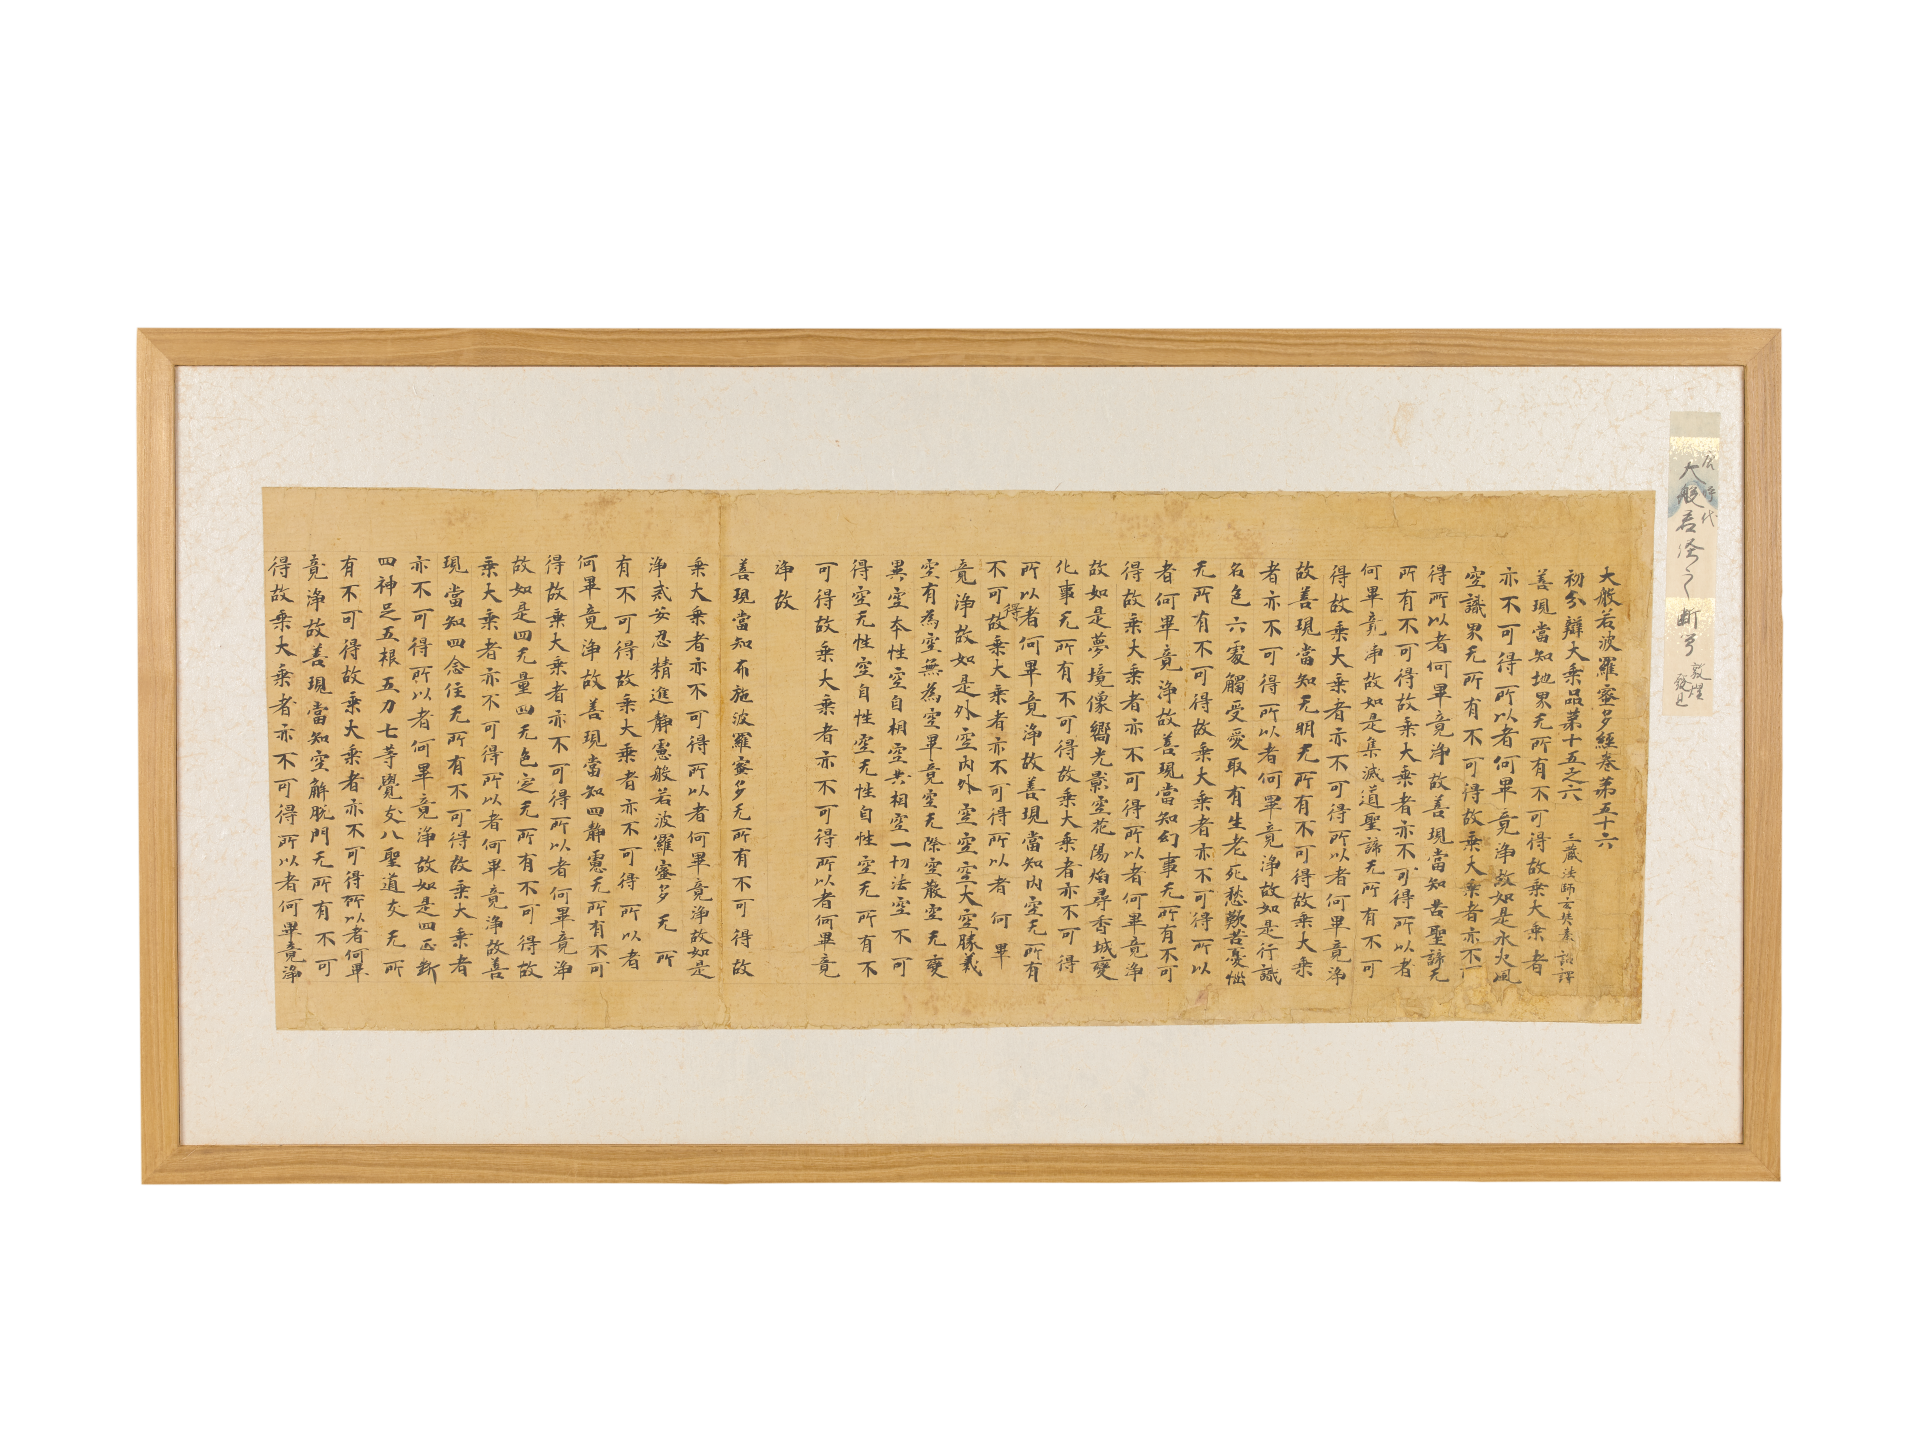 唐時代
大般若経之断片
敦煌
発見
大般若波羅蜜多經卷第五十六
初分辯大乘品第十五之六 三藏法師玄奘奉詔譯
善現當知地界无所有不可得故乘大乘者
亦不可得所以者何畢竟淨故如是水火風
空識界无所有不可得故乘大乘者亦不可
得所以者何畢竟淨故善現當知苦聖諦无
所有不可得故乘大乘者亦不可得所以者
何畢竟淨故如是集滅道聖諦无所有不可
得故乘大乘者亦不可得所以者何畢竟淨
故善現當知无明无所有不可得故乘大乘
者亦不可得所以者何畢竟淨故如是行識
名色六處觸受愛取有生老死愁歎苦憂惱
无所有不可得故乘大乘者亦不可得所以
者何畢竟淨故善現當知幻事无所有不可
得故乘大乘者亦不可得所以者何畢竟淨
故如是夢境像嚮光影空花陽焰尋香城變
化事无所有不可得故乘大乘者亦不可得
所以者何畢竟淨故善現當知內空无所有
不可得故乘大乘者亦不可得所以者何畢
竟淨故如是外空內外空空空大空勝義
空有為空無為空畢竟空无際空散空无變
異空本性空自相空共相空一切法空不可
得空无性空自性空无性自性空无所有不
可得故乘大乘者亦不可得所以者何畢竟
淨故
善現當知布施波羅蜜多无所有不可得故
乘大乘者亦不可得所以者何畢竟淨故如是
淨戒安忍精進靜慮般若波羅蜜多无所
有不可得故乘大乘者亦不可得所以者
何畢竟淨故善現當知四靜慮无所有不可
得故乘大乘者亦不可得所以者何畢竟淨
故如是四无量四无色定无所有不可得故
乘大乘者亦不可得所以者何畢竟淨故善
現當知四念住无所有不可得故乘大乘者
亦不可得所以者何畢竟淨故如是四正斷
四神足五根五力七等覺支八聖道支无所
有不可得故乘大乘者亦不可得所以者何畢
竟淨故善現當知空解脫門无所有不可
得故乘大乘者亦不可得所以者何畢竟淨